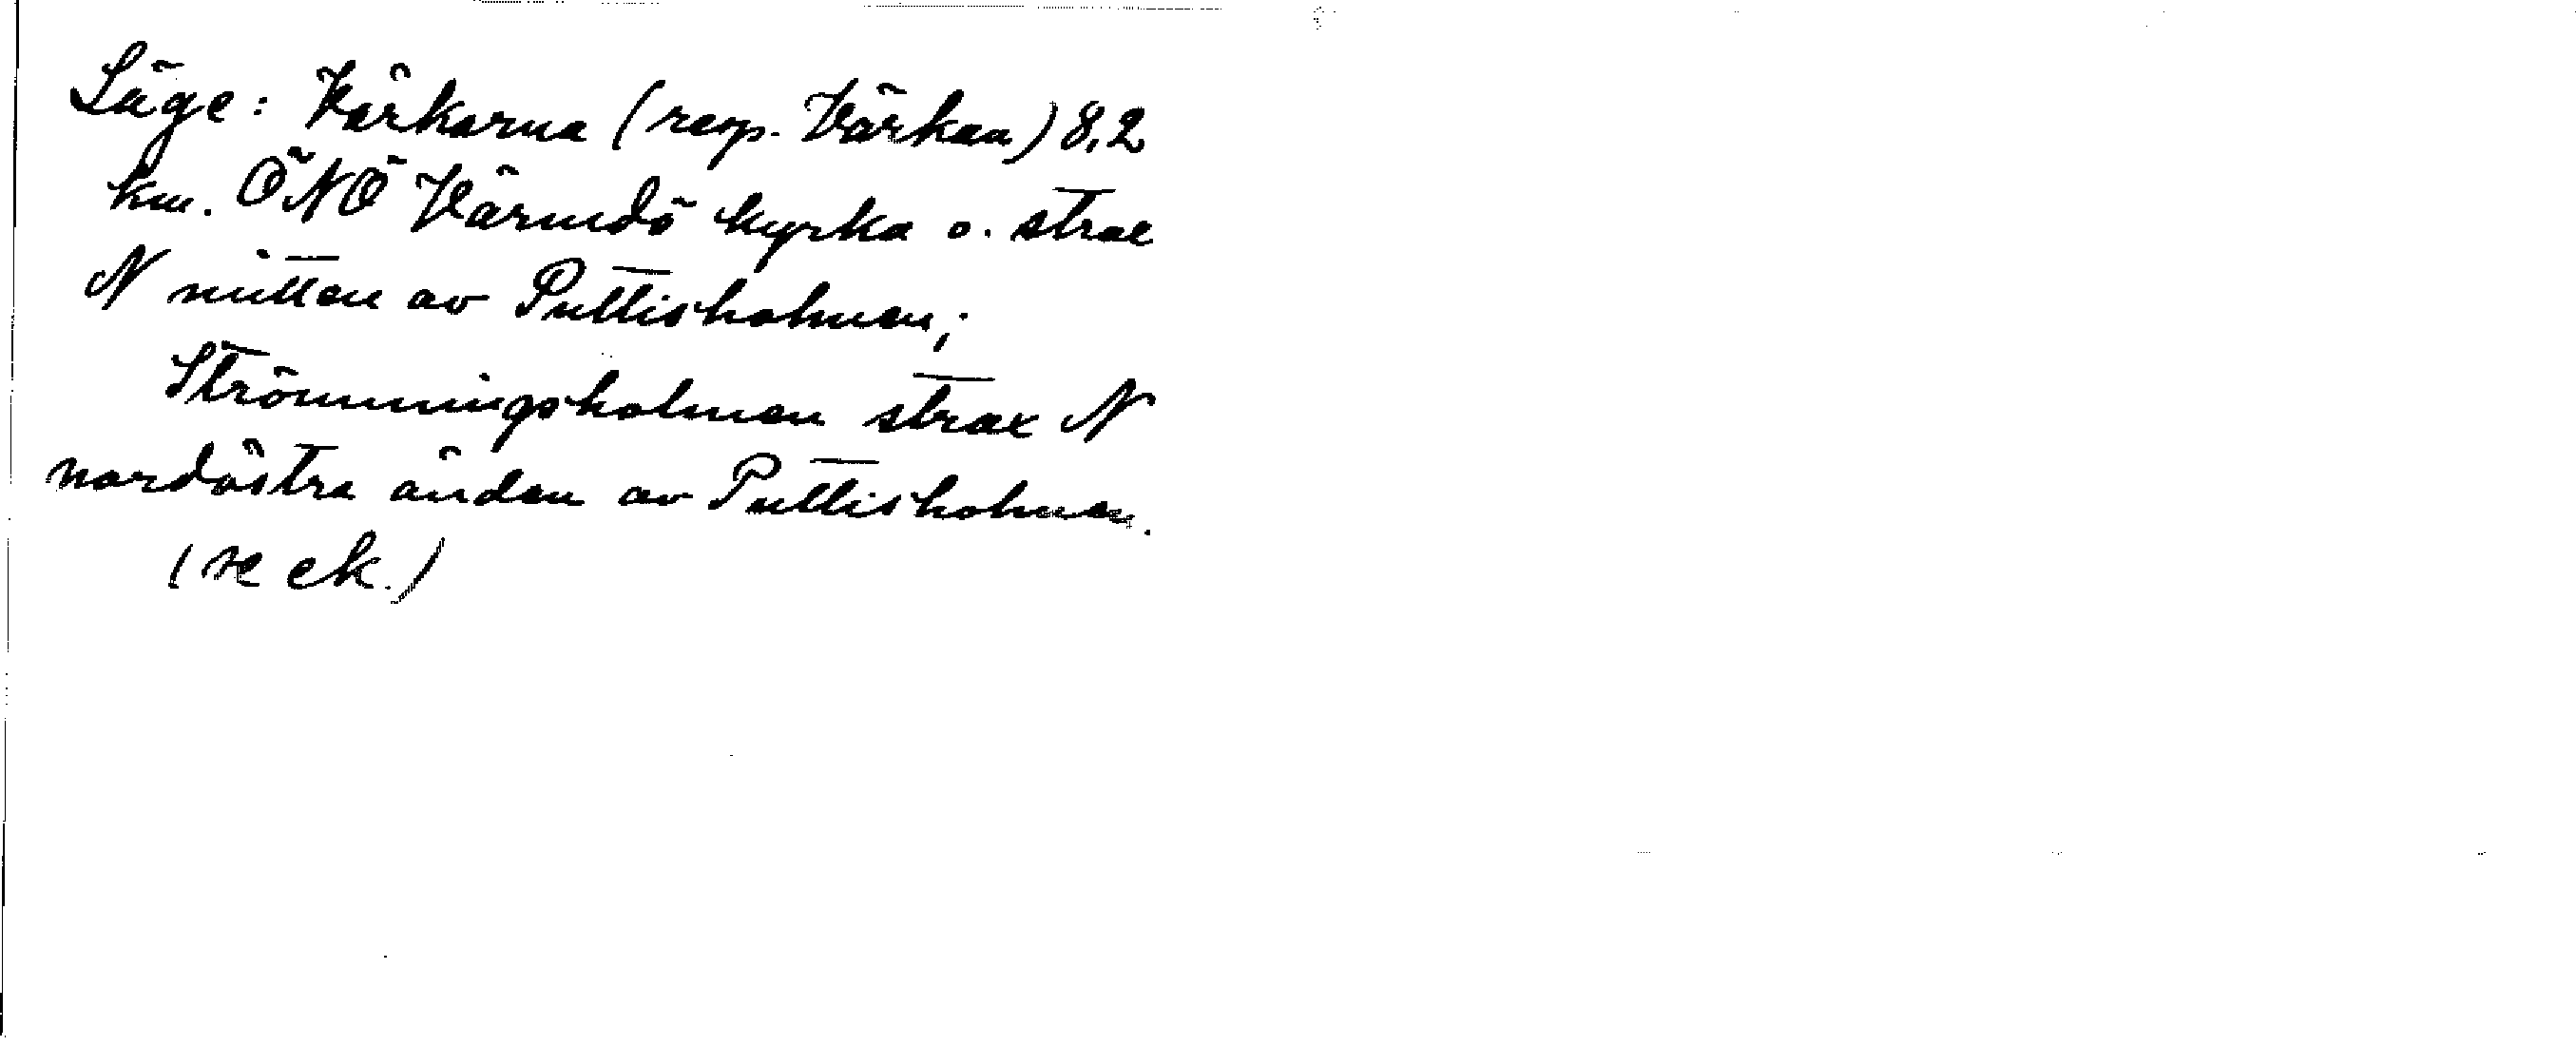 Läge: Kärkarna (resp. Värkan) 8,2
km. ÖNÖ Värmdö kyrka o. strax
N mitten av Puttisholmen;
Strömmingsholmen strax N
nordöstra änden av Puttisholmen.
(se ek.)